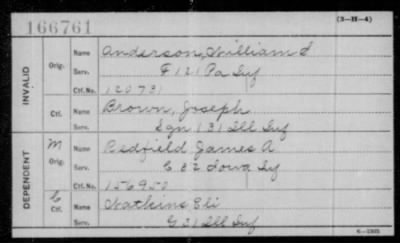 166761
(3-H-4)
INVALID
Orig.
Name Anderson, William S
Serv. F 121 Pa Inf
Ctf. No. 120731
Ctf.
Name Brown, Joseph
Serv. Sgn 131 Ill Inf
DEPENDENT
M
Orig.
Name Redfield James A
Serv. C 32 Iowa Iy
Ctf. No. 156950
C
Ctf.
Name Watkins, Eli
Serv. G 31 Ill Inf